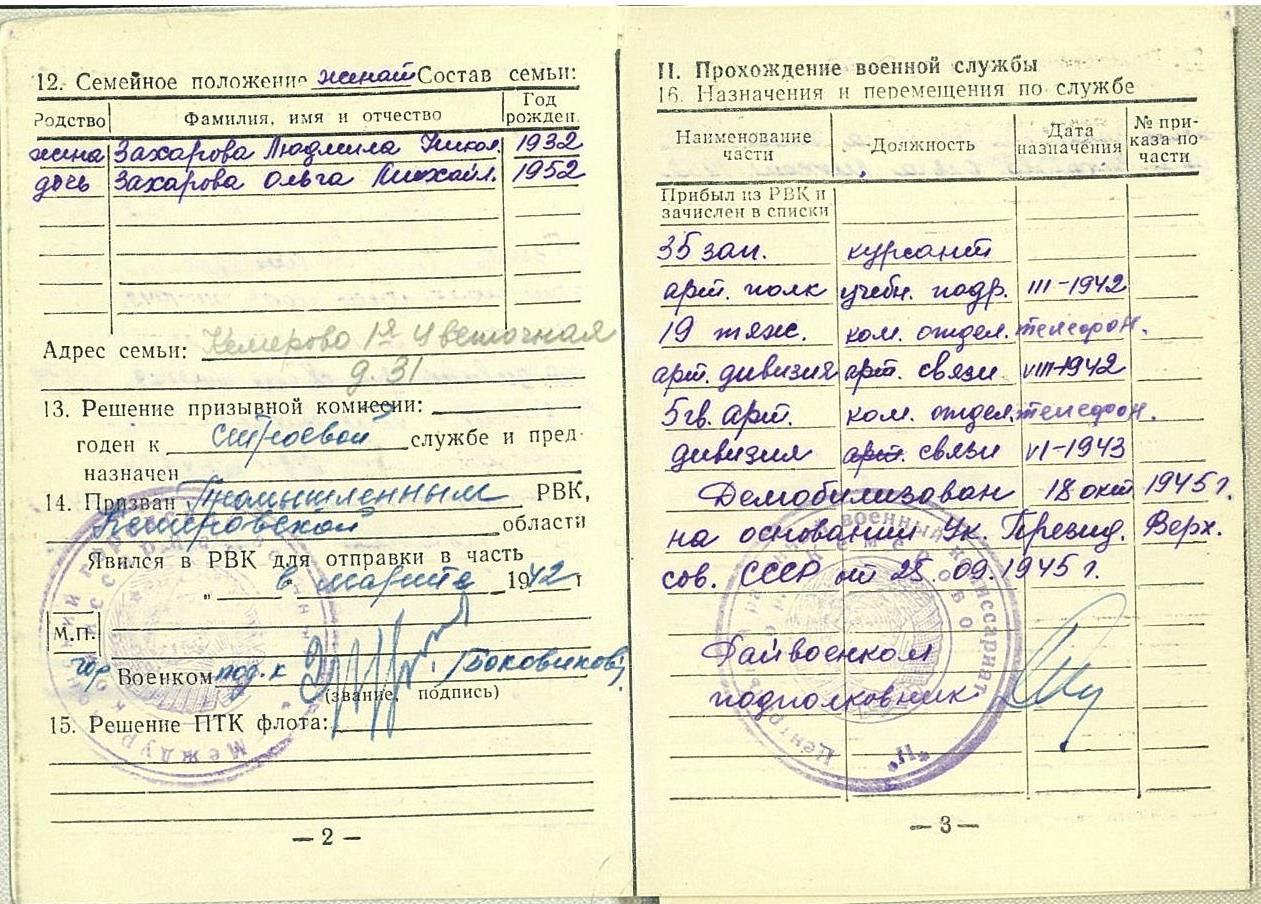 12. Семейное положение женат Состав семьи:
Родство Фамилия, имя и отчество Год рожден.
жена Захарова Людмила Никол. 1932
дочь Захарова Ольга Михайл. 1952
Адрес семьи: Кемерово 1я Цветочная
д. 31
13. Решение призывной комиссии:
годен к строевой службе и пред-
назначен
14. Призван Промышленным РВК,
Кемеровской области
Явился в РВК для отправки в часть
„ в марте 1942 г
М.П.
гор Военком под. к Боковиков
(звание, подпись)
15. Решение ПТК флота:
— 2 —
II. Прохождение военной службы
16. Назначения и перемещения по службе
Наименование части Должность Дата назначения № приказа по части
Прибыл из РВК и
зачислен в списки
35 зап. курсант
арт. полк учебн. подр. III-1942
19 тяж. ком. отдел. телефон.
арт. дивизия арт. связи VIII-1942
5 гв. арт. ком. отдел. телефон.
дивизия арт. связи VI-1943
Демобилизован 18 окт 1945 г.
на основании Ук. Презид. Верх.
сов. СССР от 25.09.1945 г.
Райвоенком
подполковник
— 3 —